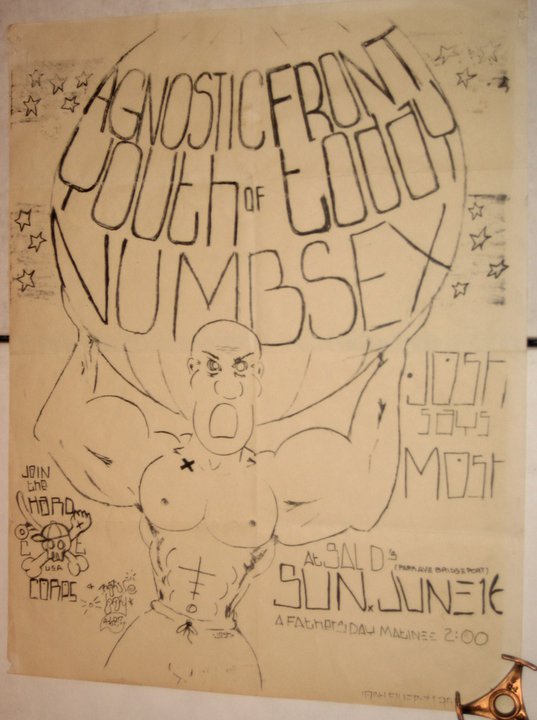 AGNOSTIC FRONT
YOUTH OF TODAY
NUMBSEX
JOSH
SAYS
MOSH
JOIN
the
HARD
C C
USA
CORPS
At SAL D's
(PARK AVE BRIDGEPORT)
SUN. JUNE 16
A FATHERS DAY MATINEE 2:00